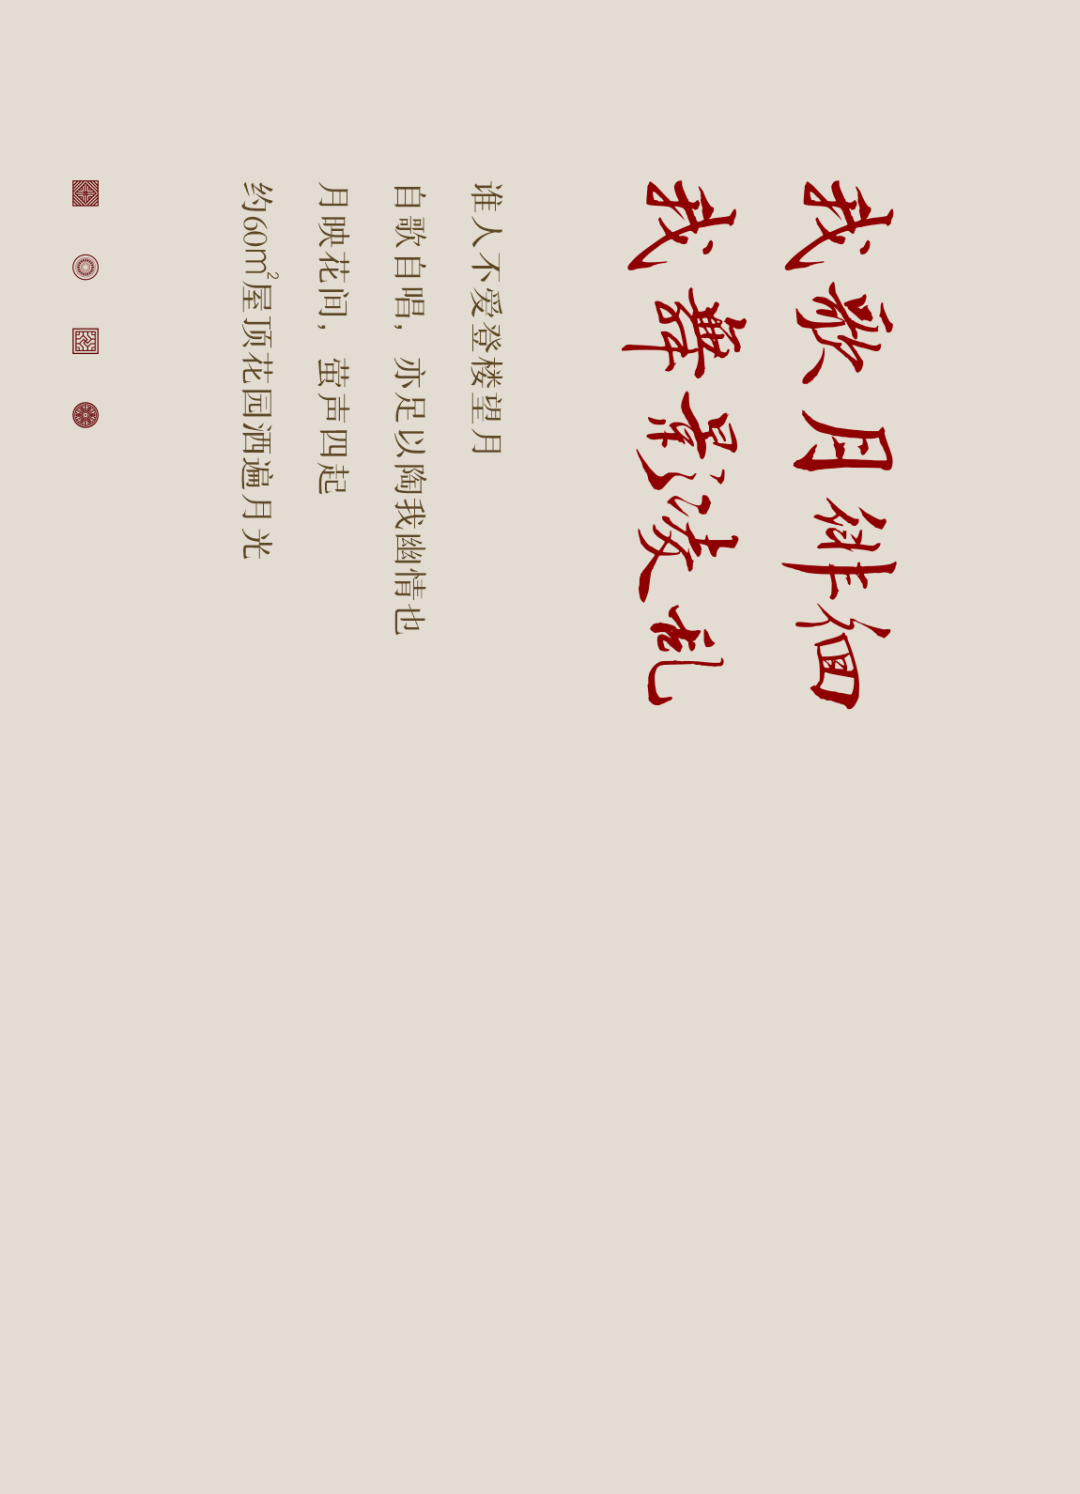 我歌月徘徊
我舞影凌乱
谁人不爱登楼望月
自歌自唱，亦足以陶我幽情也
月映花间，萤声四起
约60m²屋顶花园洒遍月光